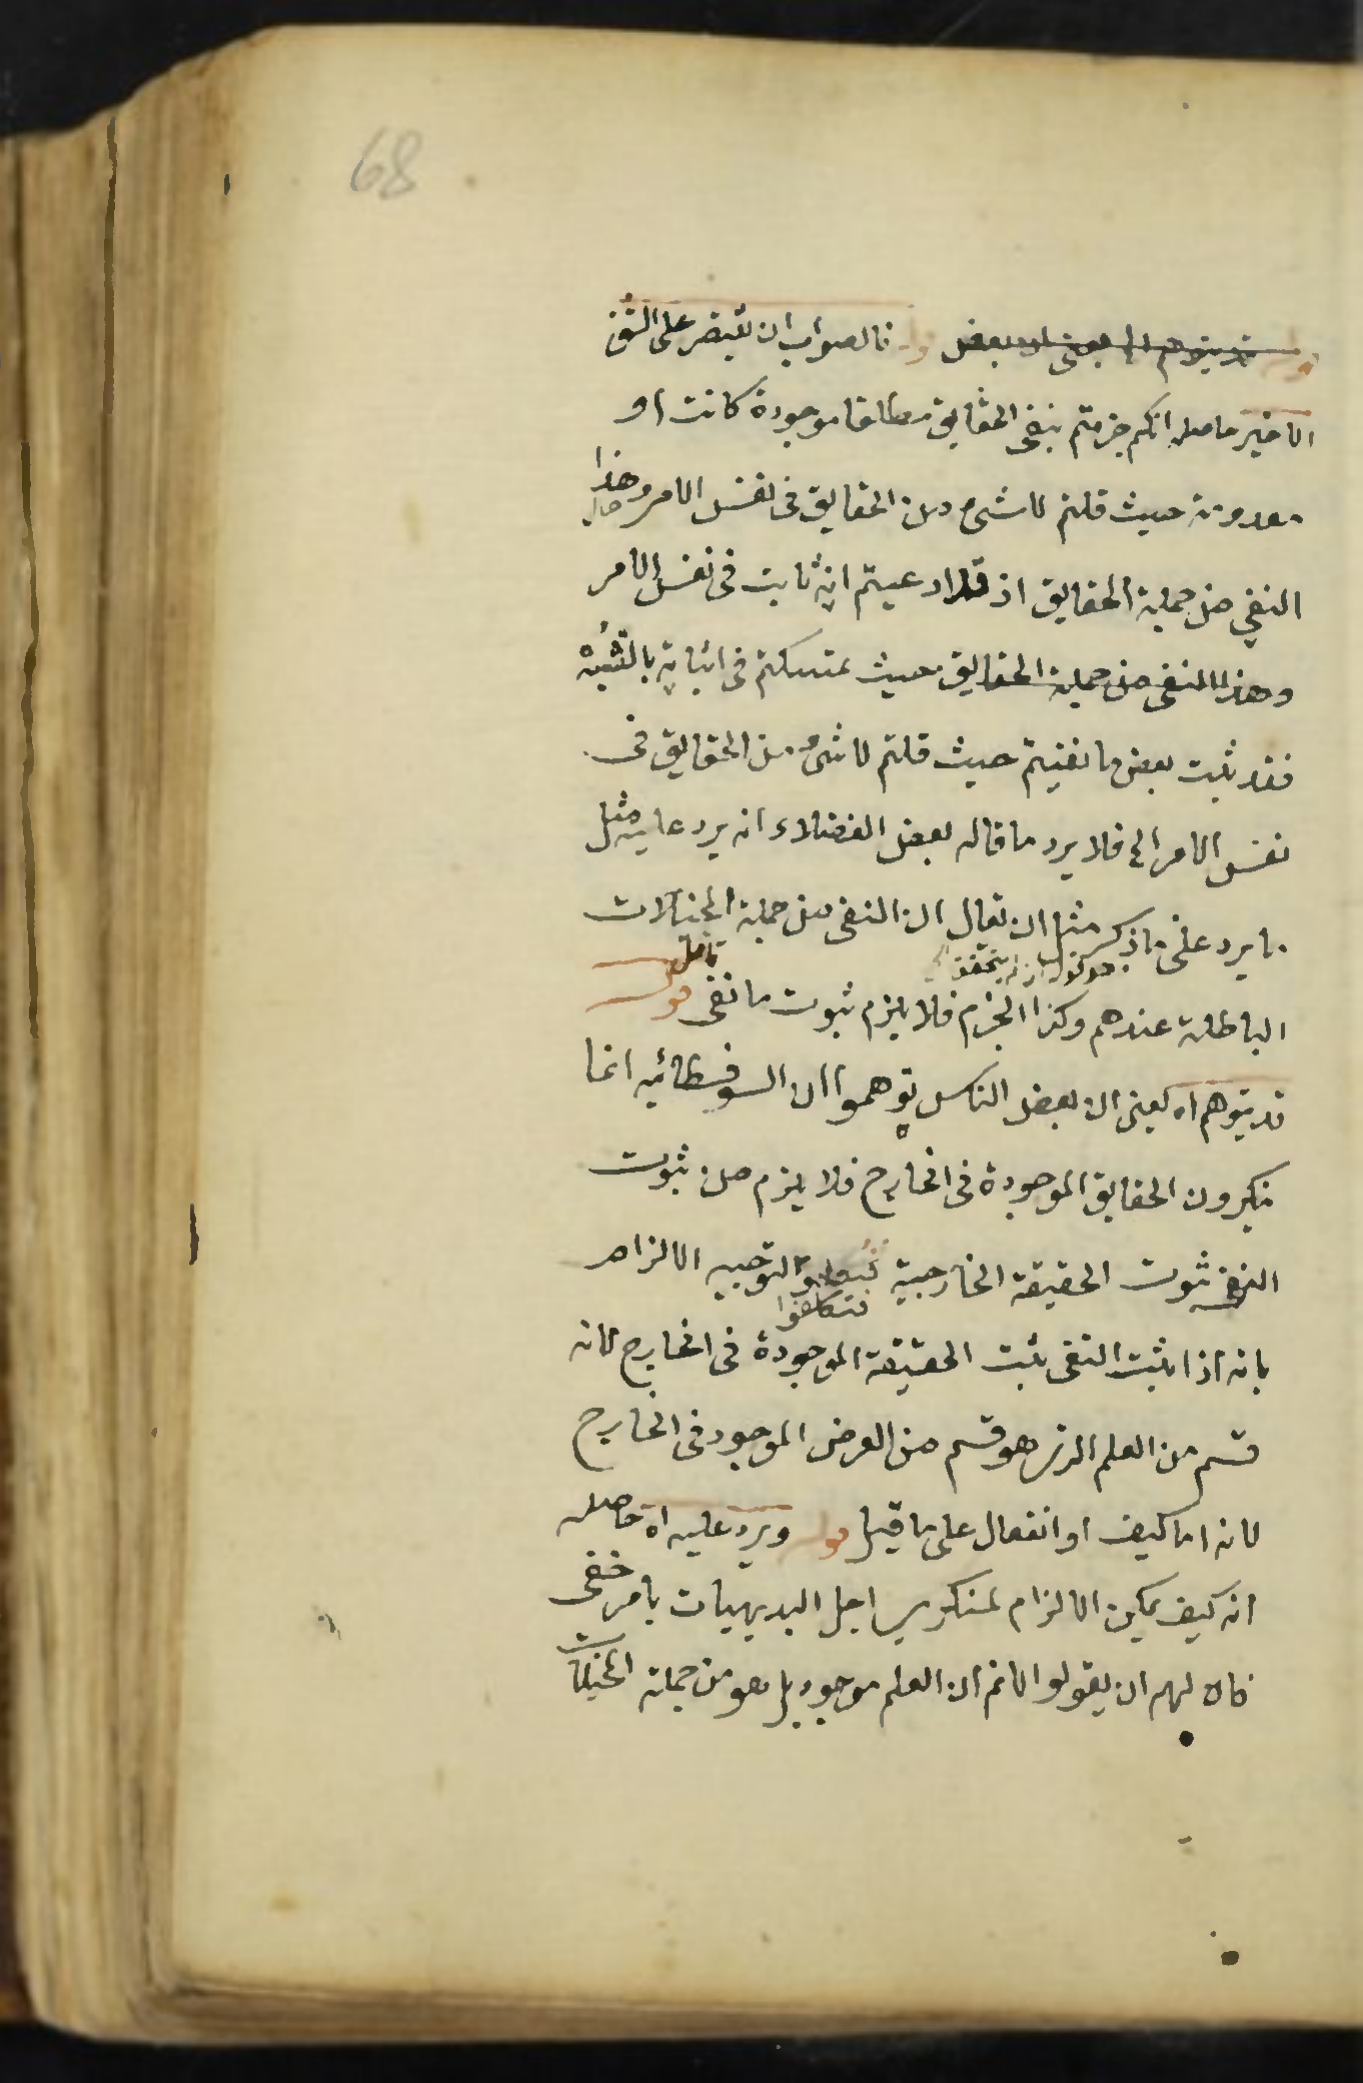 68
قوله قد يتوهم اه يعنى ان بعض قوله فالصواب ان يقتصر على الشق
الاخير حاصله انكم جزمتم بنفى الحقايق مطلقا موجودة كانت او
معدومة حيث قلتم لا شئ من الحقايق فى نفس الامر وهذا
النفى من جملة الحقايق اذ قد ادعيتم انه ثابت فى نفس الامر
وهذا النفى من جملة الحقايق حيث تمسكتم فى اثباته بالشبه
فقد ثبت بعض ما نفيتم حيث قلتم لا شئ من الحقايق فى
نفس الامر الخ فلا يرد ما قاله بعض الفضلاء انه يرد عليه مثل
ما يرد على ما ذكر مثلا ان يقال ان النفى من جملة المخيلات
الباطلة عندهم وكذا الجزم فلا يلزم ثبوت ما نفى تأمل قوله
قد يتوهم اه يعنى ان بعض الناس توهموا ان السوفسطائيه انما
ينكرون الحقايق الموجودة فى الخارج فلا يلزم من ثبوت
النفى ثبوت الحقيقة الخارجية فتكلفوا لتوجيه الالزام
بانه اذا ثبت النفى ثبت الحقيقة الموجودة فى الخارج لانه
قسم من العلم الذى هو قسم من العرض الموجود فى الخارج
لانه اما كيف او انفعال على ما قيل قوله ويرد عليه اه حاصله
انه كيف يمكن الالزام لمنكرى اجل البديهيات بامر خفى
فان لهم ان يقولوا لانم ان العلم موجود بل هو من جملة المخيلات